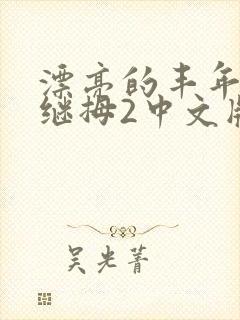 漂亮的丰年
继拇2中文版
吴光菁